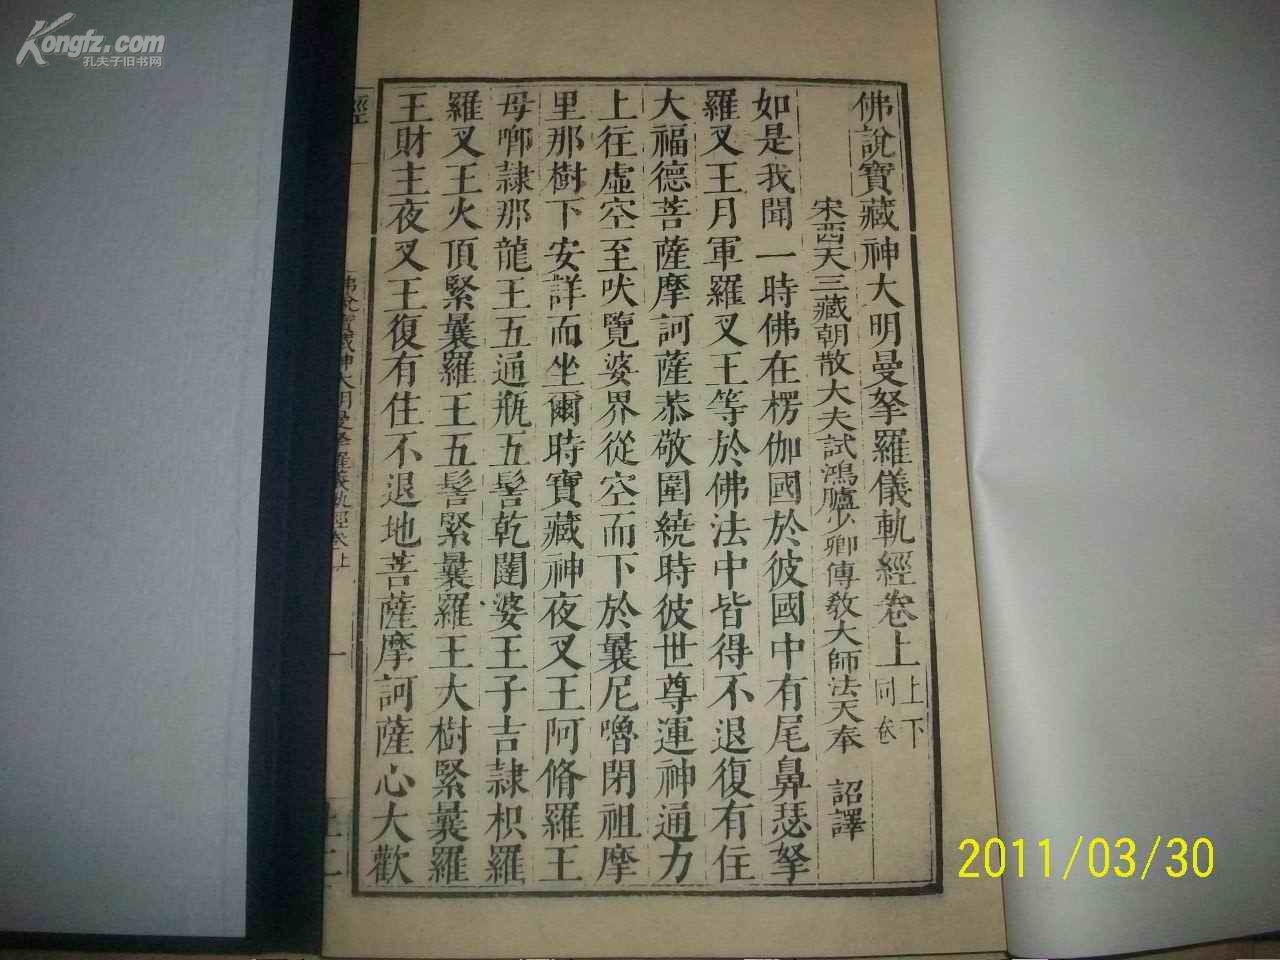 佛說寶藏神大明曼拏羅儀軌經卷上
上下
同卷
宋西天三藏朝散大夫試鴻臚少卿傳教大師法天奉 詔譯
如是我聞一時佛在楞伽國於彼國中有尾鼻瑟拏
羅叉王月軍羅叉王等於佛法中皆得不退復有住
大福德菩薩摩訶薩恭敬圍繞時彼世尊運神通力
上往虛空至吠覽婆界從空而下於曩尼嚕閉祖摩
里那樹下安詳而坐爾時寶藏神夜叉王阿脩羅王
母啷隸那龍王五通瓶五髻乾闥婆王子吉隸枳羅
羅叉王火頂緊曩羅王五髻緊曩羅王大樹緊曩羅
王財主夜叉王復有住不退地菩薩摩訶薩心大歡
經
佛說寶藏神大明曼拏羅儀軌經卷上
一
Kongfz.com
孔夫子旧书网
2011/03/30